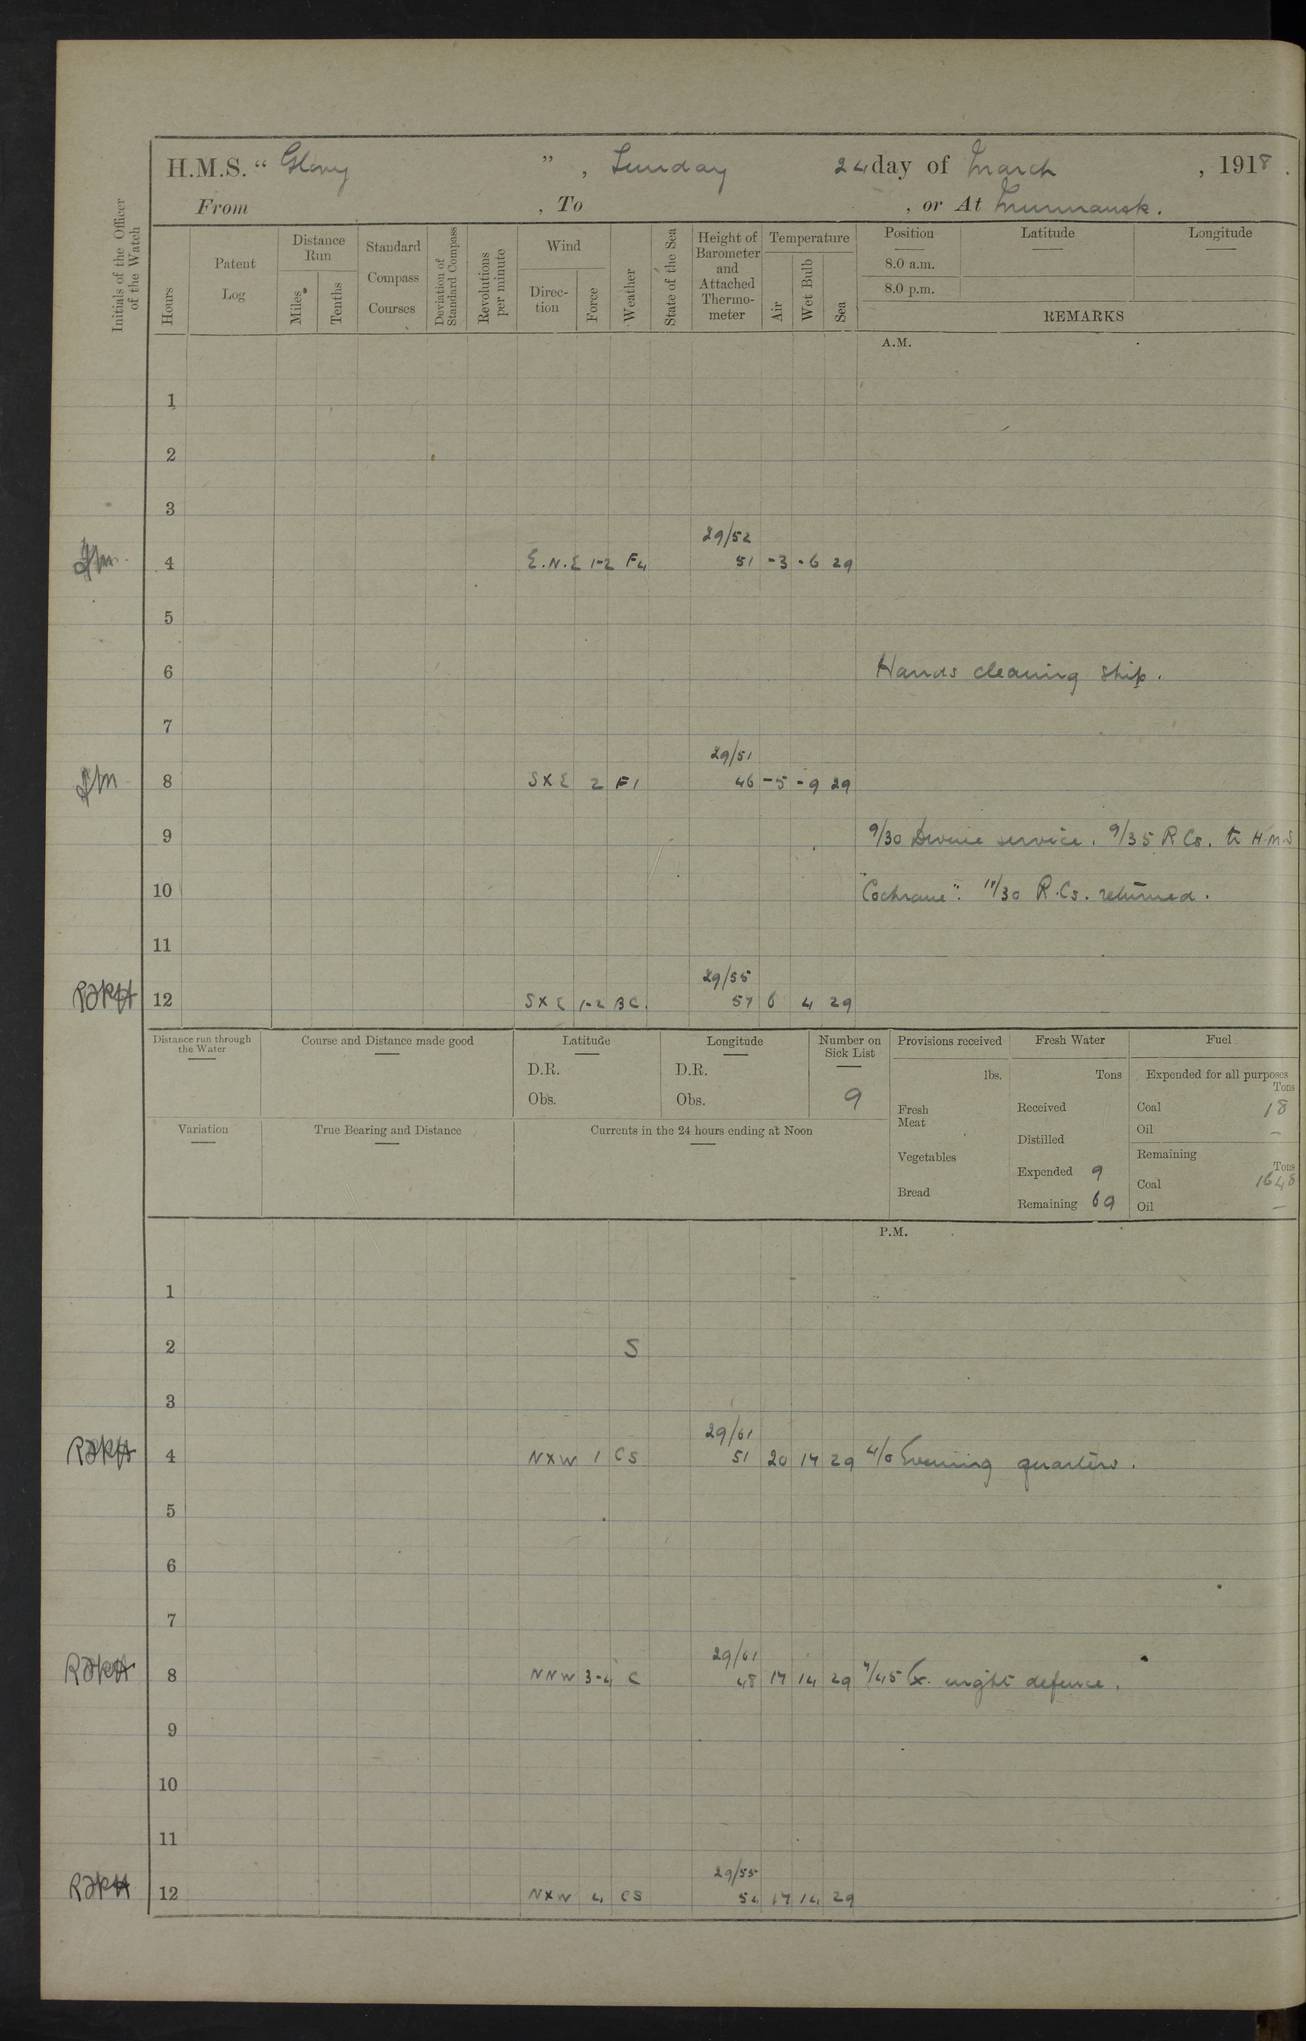 H.M.S. “ Glory ” , Sunday 24 day of March , 1918 .
From , To , or At Murmansk.
Initials of the Officer of the Watch
Hours
Patent Log
Distance Run
Miles
Tenths
Standard Compass Courses
Deviation of Standard Compass
Revolutions per minute
Wind
Direc-tion
Force
Weather
State of the Sea
Height of Barometer and Attached Thermo-meter
Temperature
Air
Wet Bulb
Sea
Position Latitude Longitude
8.0 a.m.
8.0 p.m.
REMARKS
A.M.
1
2
3
29/52
4 E.N.E 1-2 F4 51 -3 -6 29
5
6 Hands cleaning ship.
7
29/51
8 SXE 2 F1 46 -5 -9 29
9 9/30 Divine service. 9/35 R Cs. to H.M.S
10 "Cochrane". 11/30 R.Cs. returned.
11
29/55
12 SXE 1-2 BC. 57 6 4 29
Distance run through the Water
Course and Distance made good
Latitude
D.R.
Obs.
Longitude
D.R.
Obs.
Number on Sick List
9
Variation
True Bearing and Distance
Currents in the 24 hours ending at Noon
Provisions received
lbs.
Fresh Meat
Vegetables
Bread
Fresh Water
Tons
Received
Distilled
Expended 9
Remaining 69
Fuel
Expended for all purposes
Tons
Coal 18
Oil –
Remaining
Tons
Coal 1648
Oil –
P.M.
1
2 S
3
29/61
4 NXW 1 CS 51 20 17 29 4/0 Evening quarters.
5
6
7
29/61
8 NNW 3-4 C 48 17 14 29 7/45 Ex. night defence.
9
10
11
29/55
12 NXW 4 CS 54 17 14 29